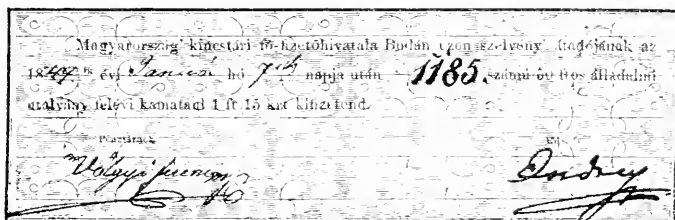 Magyarország kincstári fő-fizetőhivatala Budán ezen szelvény átadójának az
1849 ik évi Január hó 7ik napja után 1185. számú 50 ftos álladalmi
utalvány félévi kamatául 1 ft 15 krt kifizetend.
Pénztárnok
Völgyi Ferencz